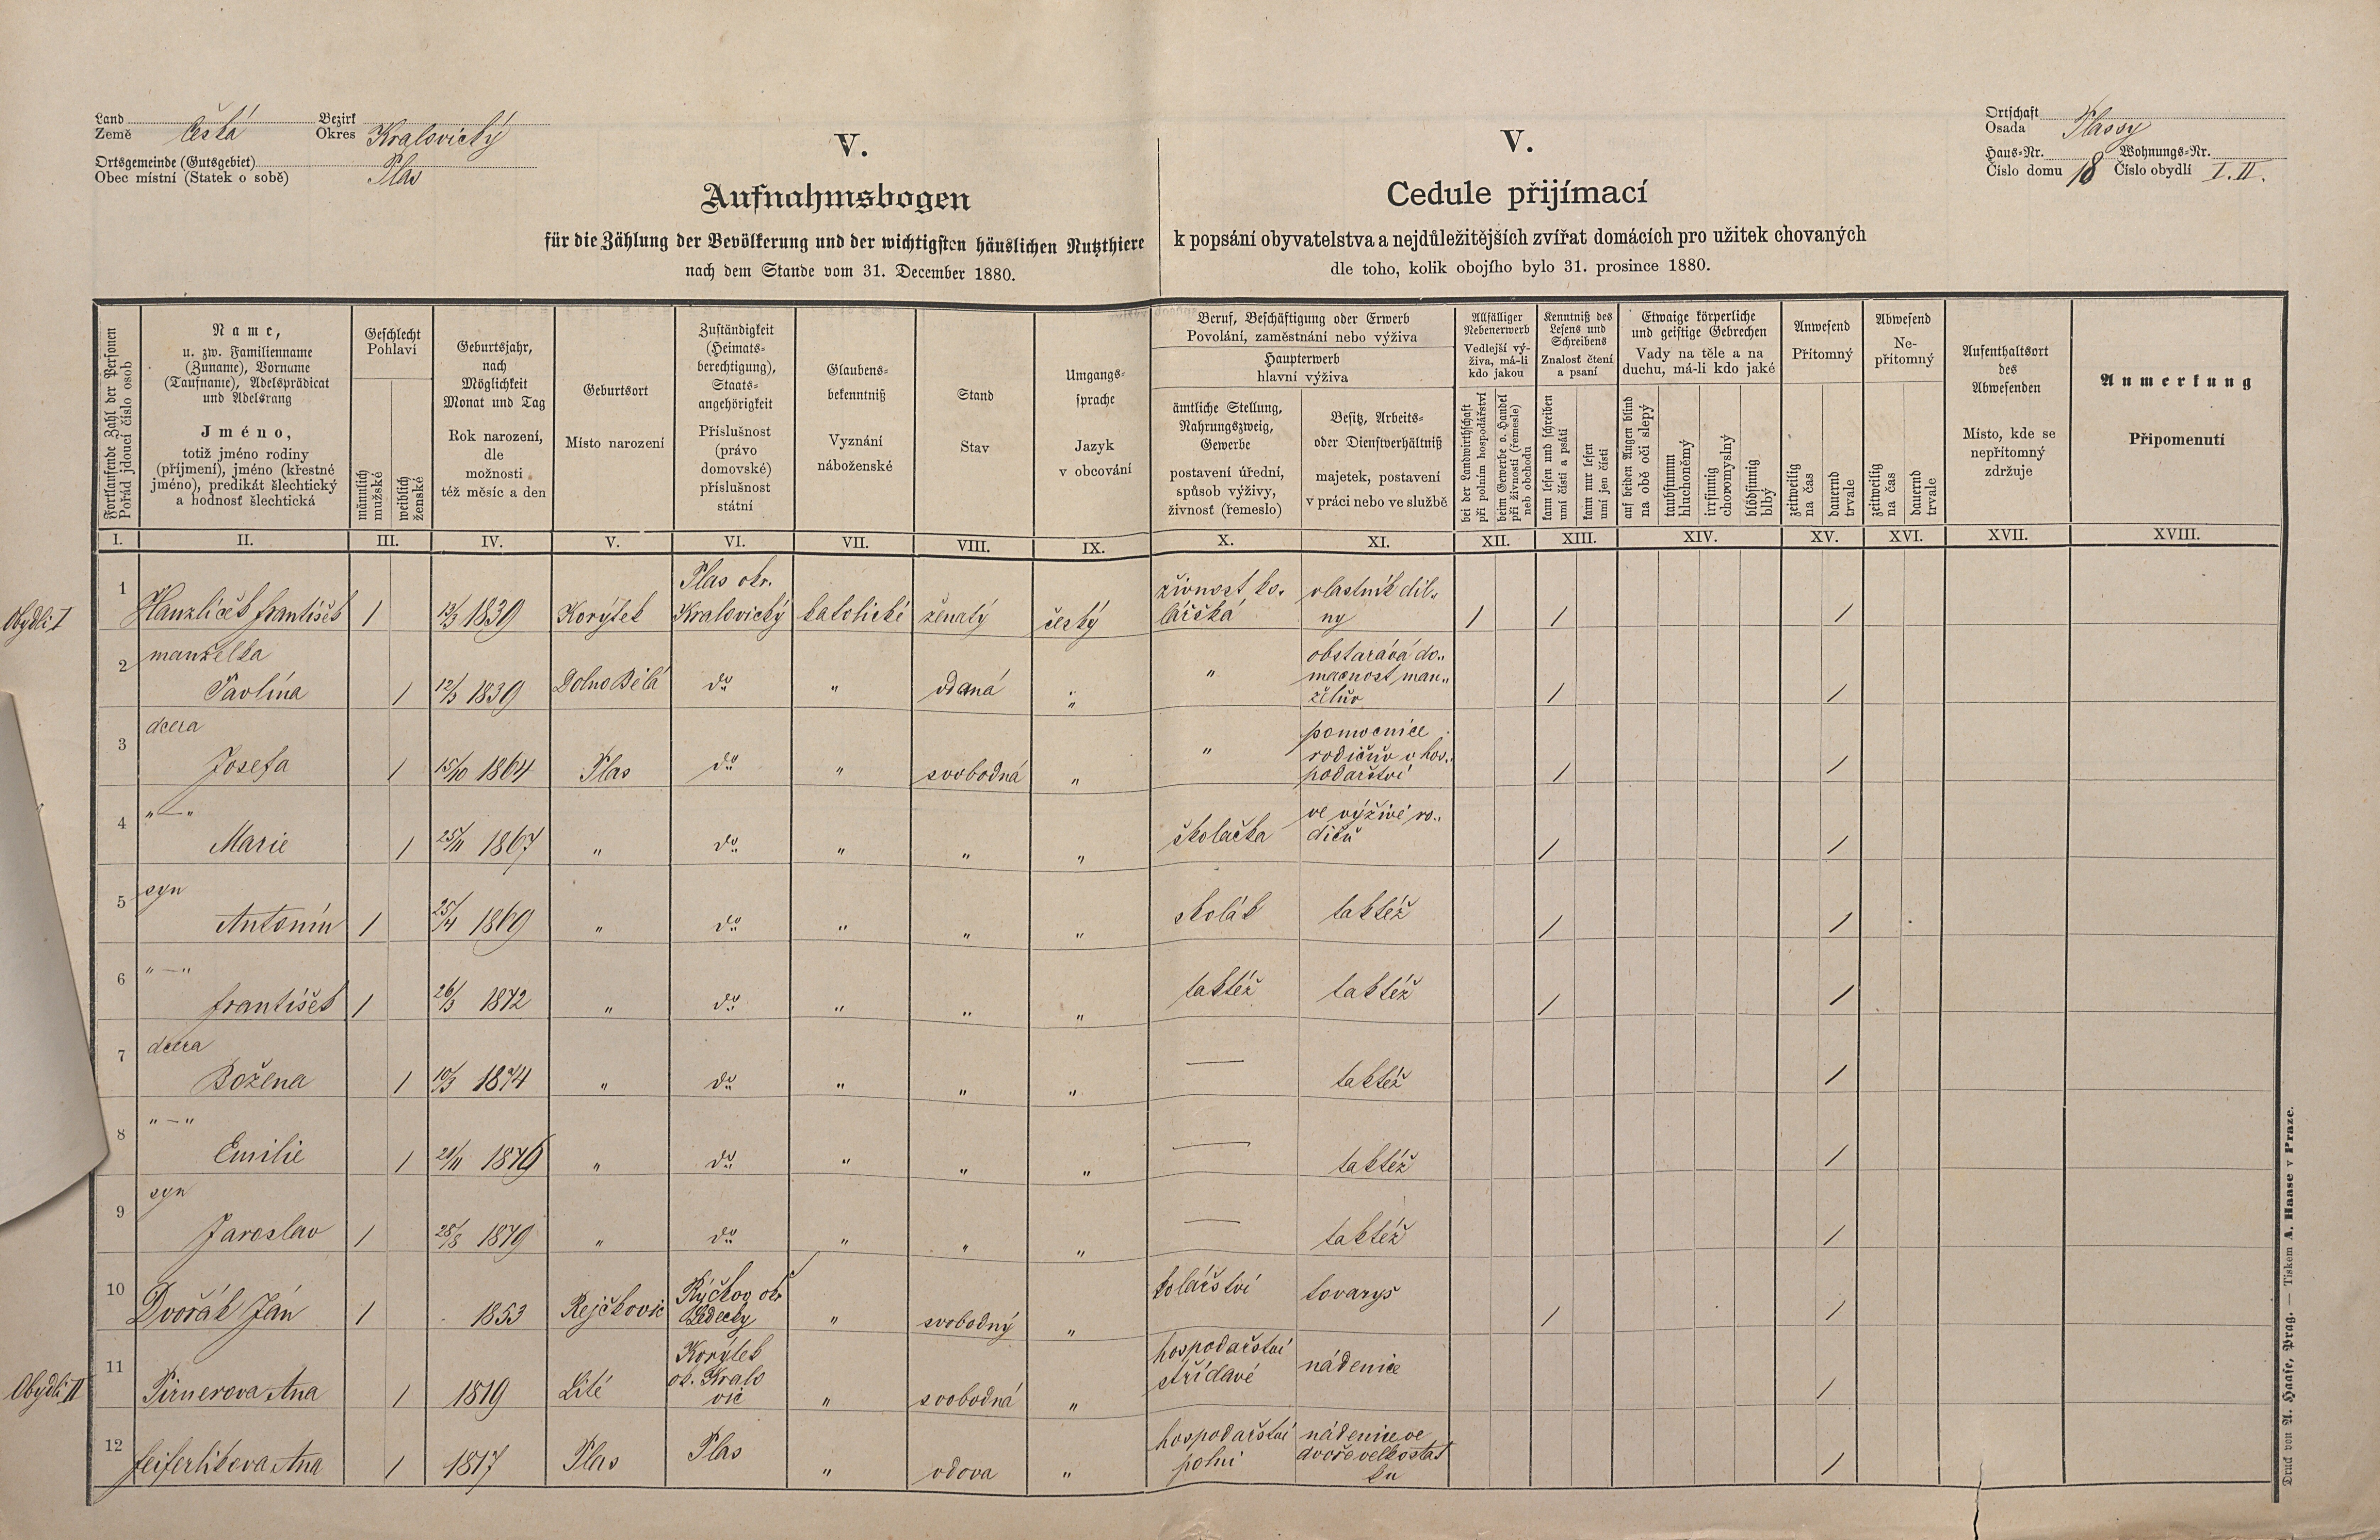 Land Bezirk
Země Česká Okres Kralovický
Ortsgemeinde (Gutsgebiet)
Obec místní (Statek o sobě) Plas
V.
Aufnahmsbogen
für die Zählung der Bevölkerung und der wichtigsten häuslichen Nutzthiere
nach dem Stande vom 31. December 1880.
V.
Cedule přijímací
k popsání obyvatelstva a nejdůležitějších zvířat domácích pro užitek chovaných
dle toho, kolik obojího bylo 31. prosince 1880.
Ortschaft
Osada Plassy
Haus-Nr. Wohnungs-Nr.
Číslo domu 18 Číslo obydlí I. II.
Fortlaufende Zahl der Personen
Pořád jdoucí číslo osob
Name,
u. zw. Familienname
(Zuname), Vorname
(Taufname), Adelsprädicat
und Adelsrang
Jméno,
totiž jméno rodiny
(příjmení), jméno (křestné
jméno), predikát šlechtický
a hodnosť šlechtická
Geschlecht
Pohlaví
männlich
mužské
weiblich
ženské
Geburtsjahr,
nach
Möglichkeit
Monat und Tag
Rok narození,
dle
možnosti
též měsíc a den
Geburtsort
Místo narození
Zuständigkeit
(Heimats-
berechtigung),
Staats-
angehörigkeit
Příslušnost
(právo
domovské)
příslušnost
státní
Glaubens-
bekenntniß
Vyznání
náboženské
Stand
Stav
Umgangs-
sprache
Jazyk
v obcování
Beruf, Beschäftigung oder Erwerb
Povolání, zaměstnání nebo výživa
Haupterwerb
hlavní výživa
ämtliche Stellung,
Nahrungszweig,
Gewerbe
postavení úřední,
spůsob výživy,
živnosť (řemeslo)
Besitz, Arbeits-
oder Dienstverhältniß
majetek, postavení
v práci nebo ve službě
Allfälliger
Nebenerwerb
Vedlejší vý-
živa, má-li
kdo jakou
bei der Landwirthschaft
při polním hospodářství
beim Gewerbe o. Handel
při živnosti (řemesle)
neb obchodu
Kenntniß des
Lesens und
Schreibens
Znalosť čtení
a psaní
kann lesen und schreiben
umí čísti a psáti
kann nur lesen
umí jen čísti
Etwaige körperliche
und geistige Gebrechen
Vady na těle a na
duchu, má-li kdo jaké
auf beiden Augen blind
na obě oči slepý
taubstumm
hluchoněmý
irrsinnig
choromyslný
blödsinnig
blbý
Anwesend
Přítomný
zeitweilig
na čas
dauernd
trvale
Abwesend
Ne-
přítomný
zeitweilig
na čas
dauernd
trvale
Aufenthaltsort
des
Abwesenden
Místo, kde se
nepřítomný
zdržuje
Anmerkung
Připomenutí
I. II. III. IV. V. VI. VII. VIII. IX. X. XI. XII. XIII. XIV. XV. XVI. XVII. XVIII.
Obydlí I
1 Hanzlíček František 1 13/3 1839 Korýtek Plas okr. Kralovický katolické ženatý český živnost kolářská vlastník dílny 1 1 1
2 manželka Pavlína 1 12/3 1839 Dolno Bělá do " vdaná " " obstarává domácnost manželův 1 1
3 dcera Josefa 1 15/10 1864 Plas do " svobodná " " pomocnice rodičův v hospodařství 1 1
4 "—" Marie 1 25/11 1867 " do " " " školačka ve výživě rodičů 1 1
5 syn Antonín 1 25/4 1869 " do " " " školák taktéž 1 1
6 "—" František 1 26/3 1872 " do " " " taktéž taktéž 1 1
7 dcera Božena 1 10/3 1874 " do " " " — taktéž 1
8 "—" Emilie 1 21/11 1876 " do " " " — taktéž 1
9 syn Jaroslav 1 28/8 1879 " do " " " — taktéž 1
10 Dvořák Ján 1 1853 Rejčkovic Rýčkov okr Ledecky " svobodný " kolářství tovaryš 1 1
Obydlí II
11 Pirnerova Ana 1 1819 Lité Korýtek ok. Kralovic " svobodná " hospodařství střídavé nádenice 1
12 feiferlikova Ana 1 1817 Plas Plas " vdova " hospodařství polní nádenice ve dvoře velkostatku 1
Druck von A. Haase, Prag. — Tiskem A. Haase v Praze.